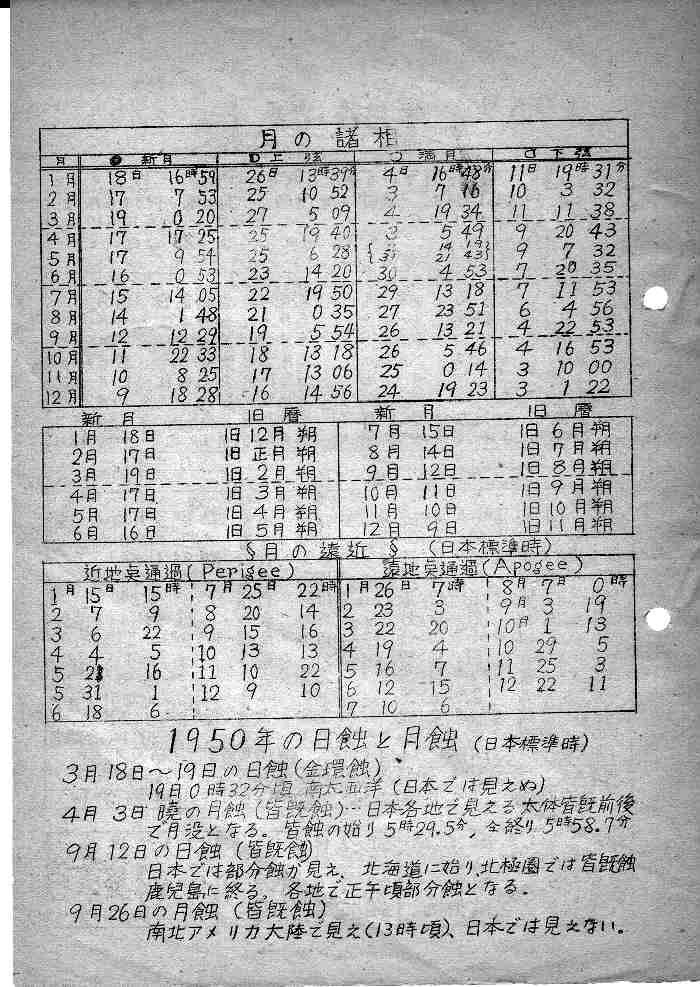 月の諸相
月 ● 新月 D 上弦 ○ 満月 下弦
1月 18日 16時59 26日 13時39分 4日 16時48分 11日 19時31分
2月 17 7 53 25 10 52 3 7 16 10 3 32
3月 19 0 20 27 5 09 4 19 34 11 11 38
4月 17 17 25 25 19 40 3 5 49 9 20 43
5月 17 9 54 25 6 28 { 31 21 43 } 9 7 32
6月 16 0 53 23 14 20 30 4 53 7 20 35
7月 15 14 05 22 19 50 29 13 18 7 11 53
8月 14 1 48 21 0 35 27 23 51 6 4 56
9月 12 12 29 19 5 54 26 13 21 4 22 53
10月 11 22 33 18 13 18 26 5 46 4 16 53
11月 10 8 25 17 13 06 25 0 14 3 10 00
12月 9 18 28 16 14 56 24 19 23 3 1 22
新月 旧暦 新月 旧暦
1月 18日 旧12月朔 7月 15日 旧6月朔
2月 17日 旧正月朔 8月 14日 旧7月朔
3月 19日 旧2月朔 9月 12日 旧8月朔
4月 17日 旧3月朔 10月 11日 旧9月朔
5月 17日 旧4月朔 11月 10日 旧10月朔
6月 16日 旧5月朔 12月 9日 旧11月朔
§月の遠近§ (日本標準時)
近地奌通過(Perigee) 遠地奌通過(Apogee)
1月 15日 15時 7月 25日 22時 1月 26日 7時 8月 7日 0時
2 7 9 8 20 14 2 23 3 9月 3 19
3 6 22 9 15 16 3 22 20 10月 1 13
4 4 5 10 13 13 4 19 4 10 29 5
5 16 11 10 22 5 16 7 11 25 3
5 31 1 12 9 10 6 12 15 12 22 11
6 18 6 7 10 6
1950年の日蝕と月蝕(日本標準時)
3月18日〜19日の日蝕(金環蝕)
19日0時32分頃 南太西洋(日本では見えぬ)
4月3日暁の月蝕(皆既蝕)…日本各地で見える 太体皆既前後
で月没となる。皆蝕の始り5時29.5分,仝終り5時58.7分
9月12日の日蝕(皆既蝕)
日本では部分蝕が見え、北海道に始り、北極圏では皆既蝕
鹿児島に終る。各地で正午頃部分蝕となる。
9月26日の月蝕(皆既蝕)
南北アメリカ大陸で見え(13時頃)、日本では見えない。